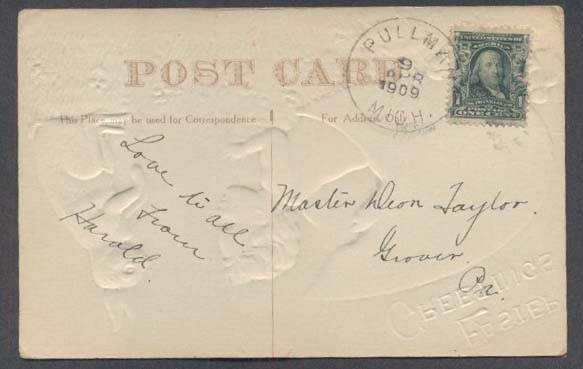 POST CARD
PULLMAN
9
APR
1909
MICH.
1 ONE CENT 1
This Place may be used for Correspondence
For Address Only
Love to all
from
Harold.
Master Deon Taylor.
Grover.
Pa.
GREETINGS
EASTER